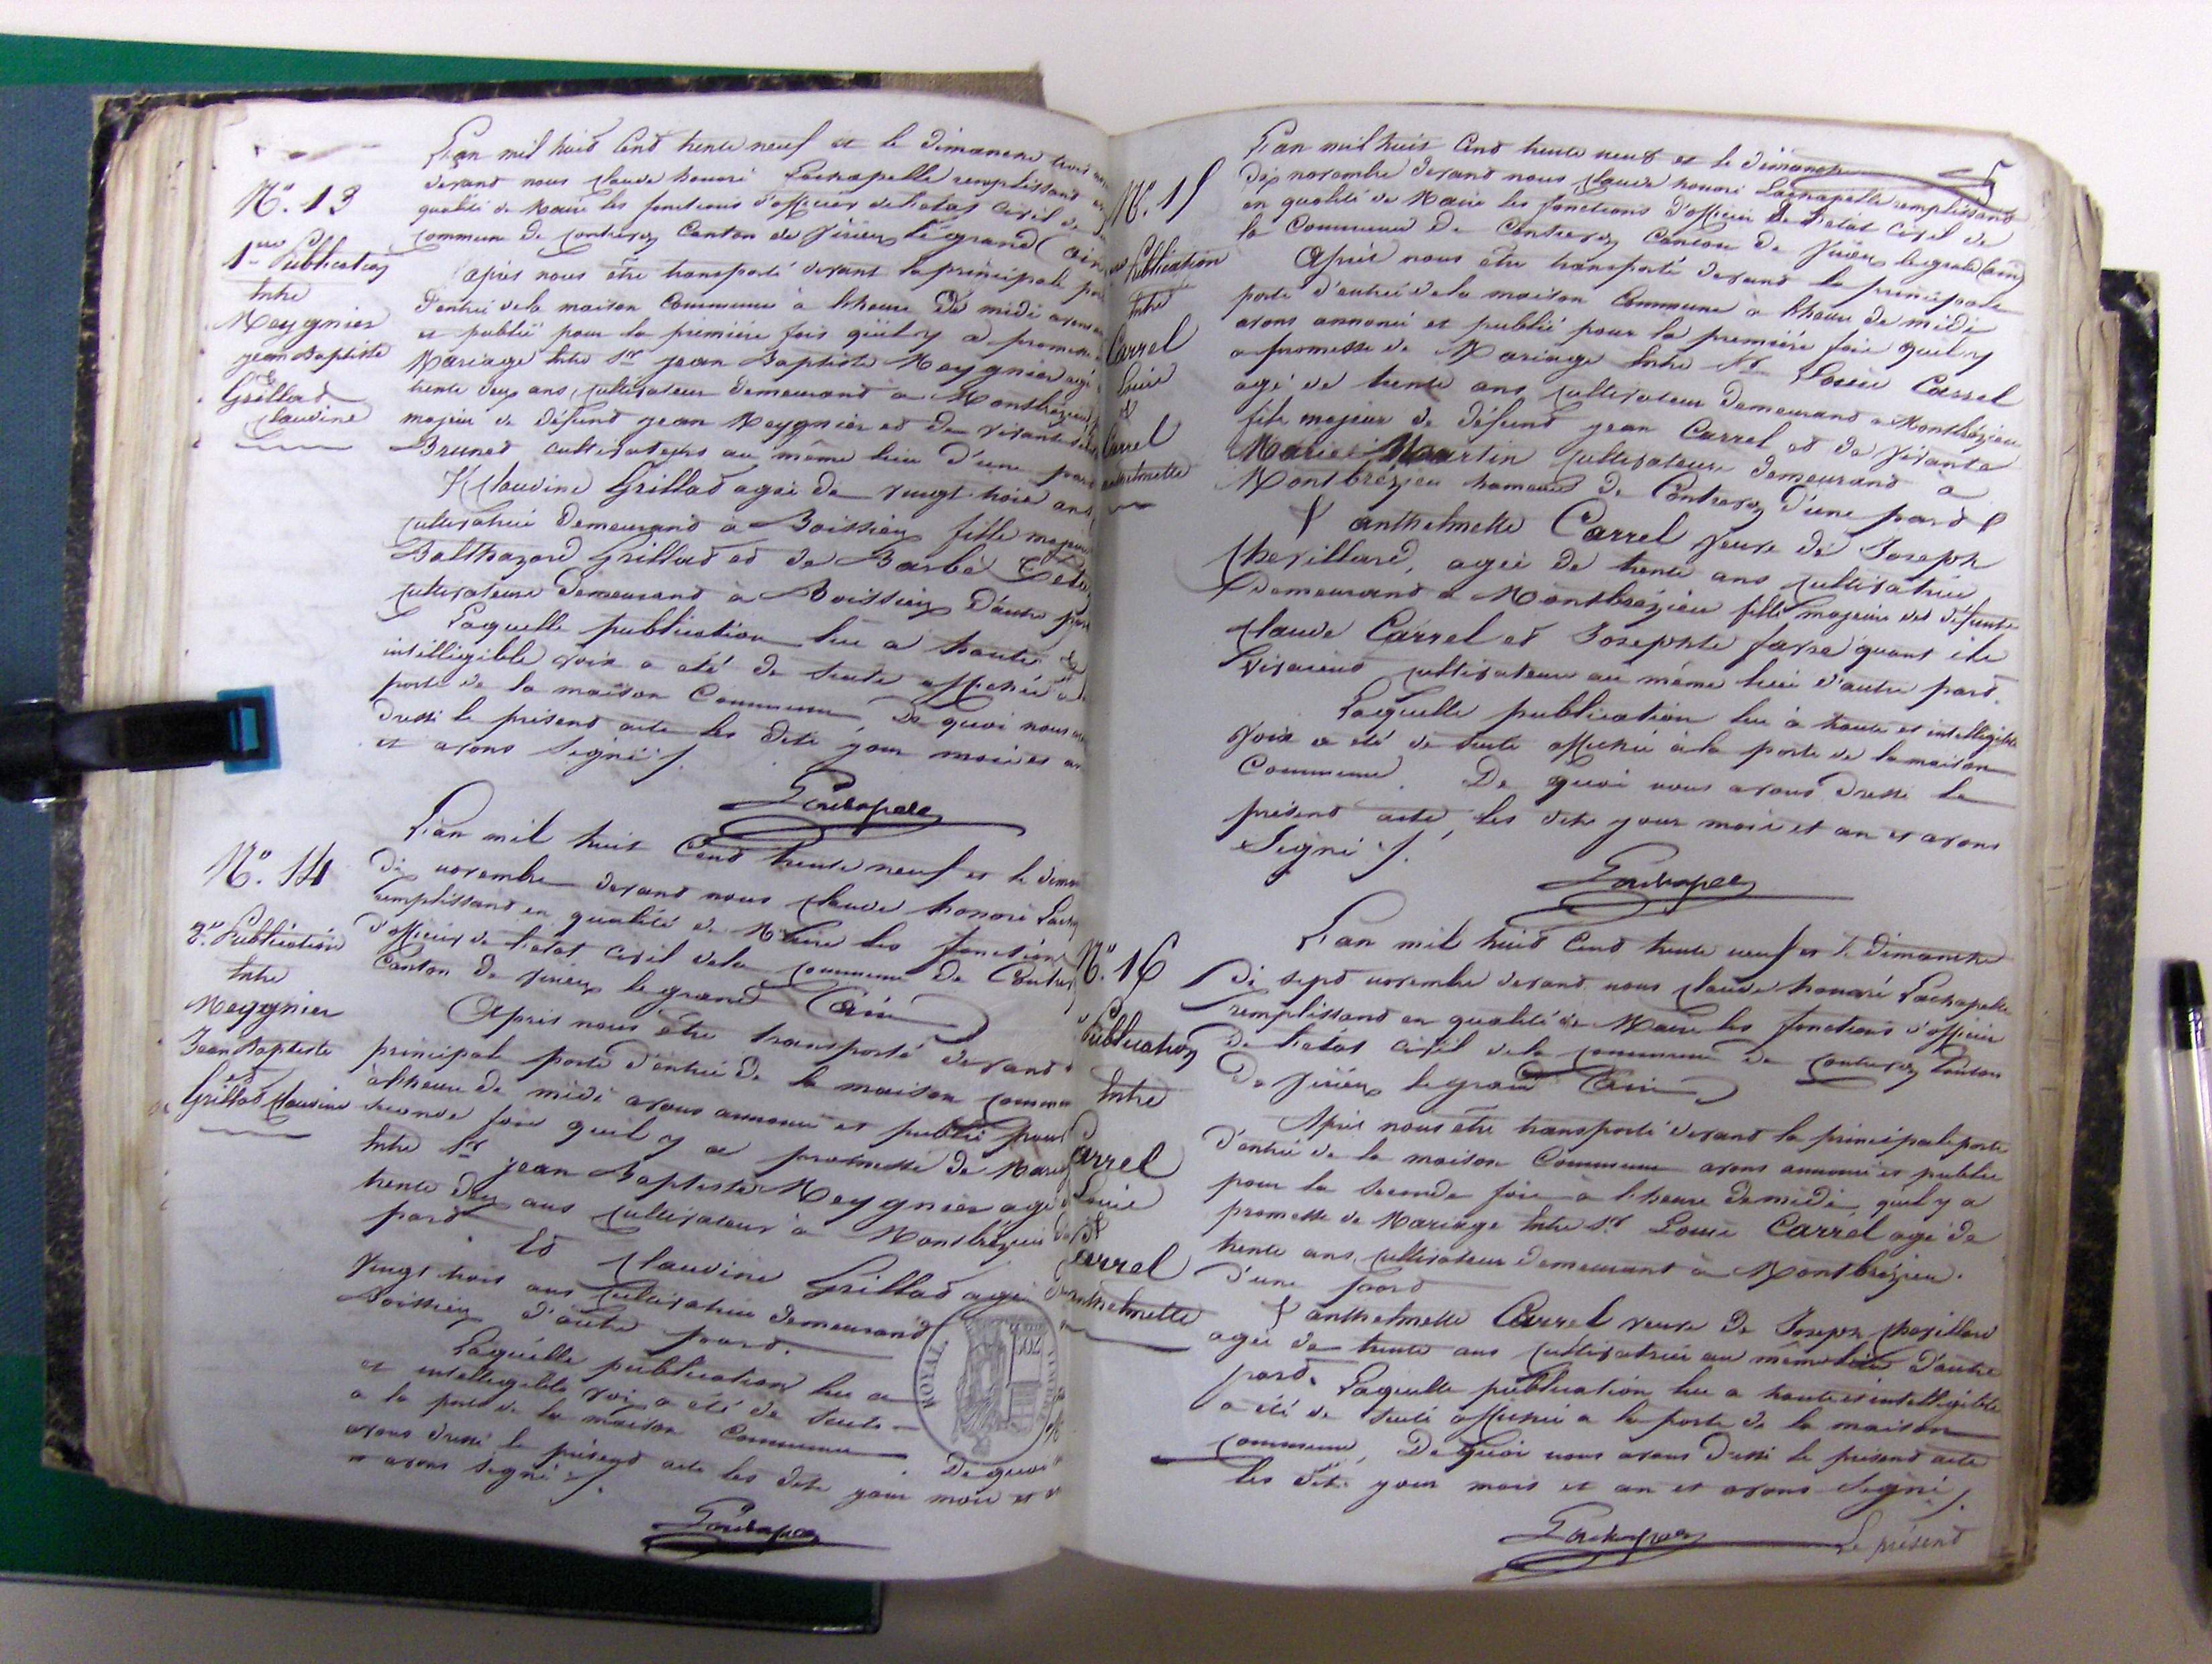 L'an mil huit Cent trente neuf et le dimanche trois
devant nous Claude honoré Lachapelle remplissant en
N°. 13
qualité de Maire les fonctions d'officier de l'etat civil de la
commune de Contrevoz Canton de Virieu le grand (ain
1re Publication
Entre
Meygnier
jean Baptiste
et
Grillat
Claudine
Après nous être transporté devant la principale porte
d'entrée de la maison Commune à l'heure de midi avons
et publié pour la première fois qu'il y a promesse
Mariage Entre Sr jean Baptiste Meygnier agé
trente deux ans, cultivateur demeurant à Montbrézieu
majeur de défunt jean Meygnier et de vivante
Brunet cultivateurs au même lieu d'une part
Et Claudine Grillat agée de vingt trois ans
cultivatrice demeurant à Boissieu fille majeure
Balthazard Grillat et de Barbe
cultivateurs demeurant à Boissieu d'autre part
Laquelle publication lue a haute et
intelligible voix a été de suite affichée a la
porte de la maison Commune De quoi nous avons
dressé le présent acte les dits jour mois et an
et avons signé /.
Lachapelle
N°. 14
2e. Publication
Entre
Meygnier
Jean Baptiste
et
Grillat Claudine
L'an mil huit Cent trente neuf et le diman
dix novembre devant nous Claude honoré Lach
remplissant en qualité de Maire les fonctions
d'officier de l'etat civil de la commune de Contrev
Canton de virieu le grand (Ain)
Après nous être transporté devant
principale porte d'entrée de la maison commu
à l'heure de midi avons annoncé et publié pour
seconde fois qu'il y a promesse de Mariage
Entre Sr jean Baptiste Meygnier agé
trente deux ans cultivateur à Montbrézieu d'
part
Et Claudine Grillat agée de
Vingt trois ans cultivatrice demeurant
Boissieu d'autre part.
Laquelle publication lue a
et intelligible voix a été de suite
a la porte de la maison Commune. De quoi
avons dressé le présent acte les dits jour mois et
et avons signé /.
Lachapelle
ROYAL
N°. 15
Publication
Entre
Carrel
Louis
et
Carrel
anthelmette
L'an mil huit Cent trente neuf et le dimanche
dix novembre devant nous Claude honoré Lachapelle remplissant
en qualité de Maire les fonctions d'officier de l'etat civil de
la Commune de Contrevoz Canton de Virieu le grand (ain)
Après nous être transporté devant la principale
porte d'entrée de la maison Commune à l'heure de midi
avons annoncé et publié pour la première fois qu'il y
a promesse de Mariage Entre Sr Louis Carrel
agé de trente ans cultivateur demeurant a Montbrézieu
fils majeur de défunt jean Carrel et de vivante
Marie Martin cultivateurs demeurant à
Montbrézieu hameau de Contrevoz d'une part
Et anthelmette Carrel veuve de Joseph
Chevillard, agée de trente ans cultivatrice
demeurant a Montbrézieu fille majeure des défunts
Claude Carrel et Josephte favre quant ils
vivaient cultivateurs au même lieu d'autre part.
Laquelle publication lue à haute et intelligible
voix a été de suite affichée à la porte de la maison
Commune. De quoi nous avons dressé le
présent acte, les dits jour mois et an et avons
Signé /.
Lachapelle
N°. 16
Publication
Entre
Carrel
Louis
et
Carrel
anthelmette
L'an mil huit Cent trente neuf et le Dimanche
dix sept novembre devant nous Claude honoré Lachapelle
remplissant en qualité de Maire les fonctions d'officier
de l'etat civil de la commune de contrevoz Canton
De Virieu le grand (Ain)
Après nous être transporté devant la principale porte
d'entrée de la maison Commune avons annoncé et publié
pour la seconde fois à l'heure de midi qu'il y a
promesse de Mariage Entre Sr. Louis Carrel agé de
trente ans, cultivateur demeurant à Montbrézieu.
d'une part
Et anthelmette Carrel veuve de Joseph Chevillard
agée de trente ans cultivatrice au même lieu d'autre
part. Laquelle publication lue a haute et intelligible
a été de suite affichée a la porte de la maison
commune, De quoi nous avons dressé le présent acte
les dits jour mois et an et avons Signé /.
Lachapelle
Le présent